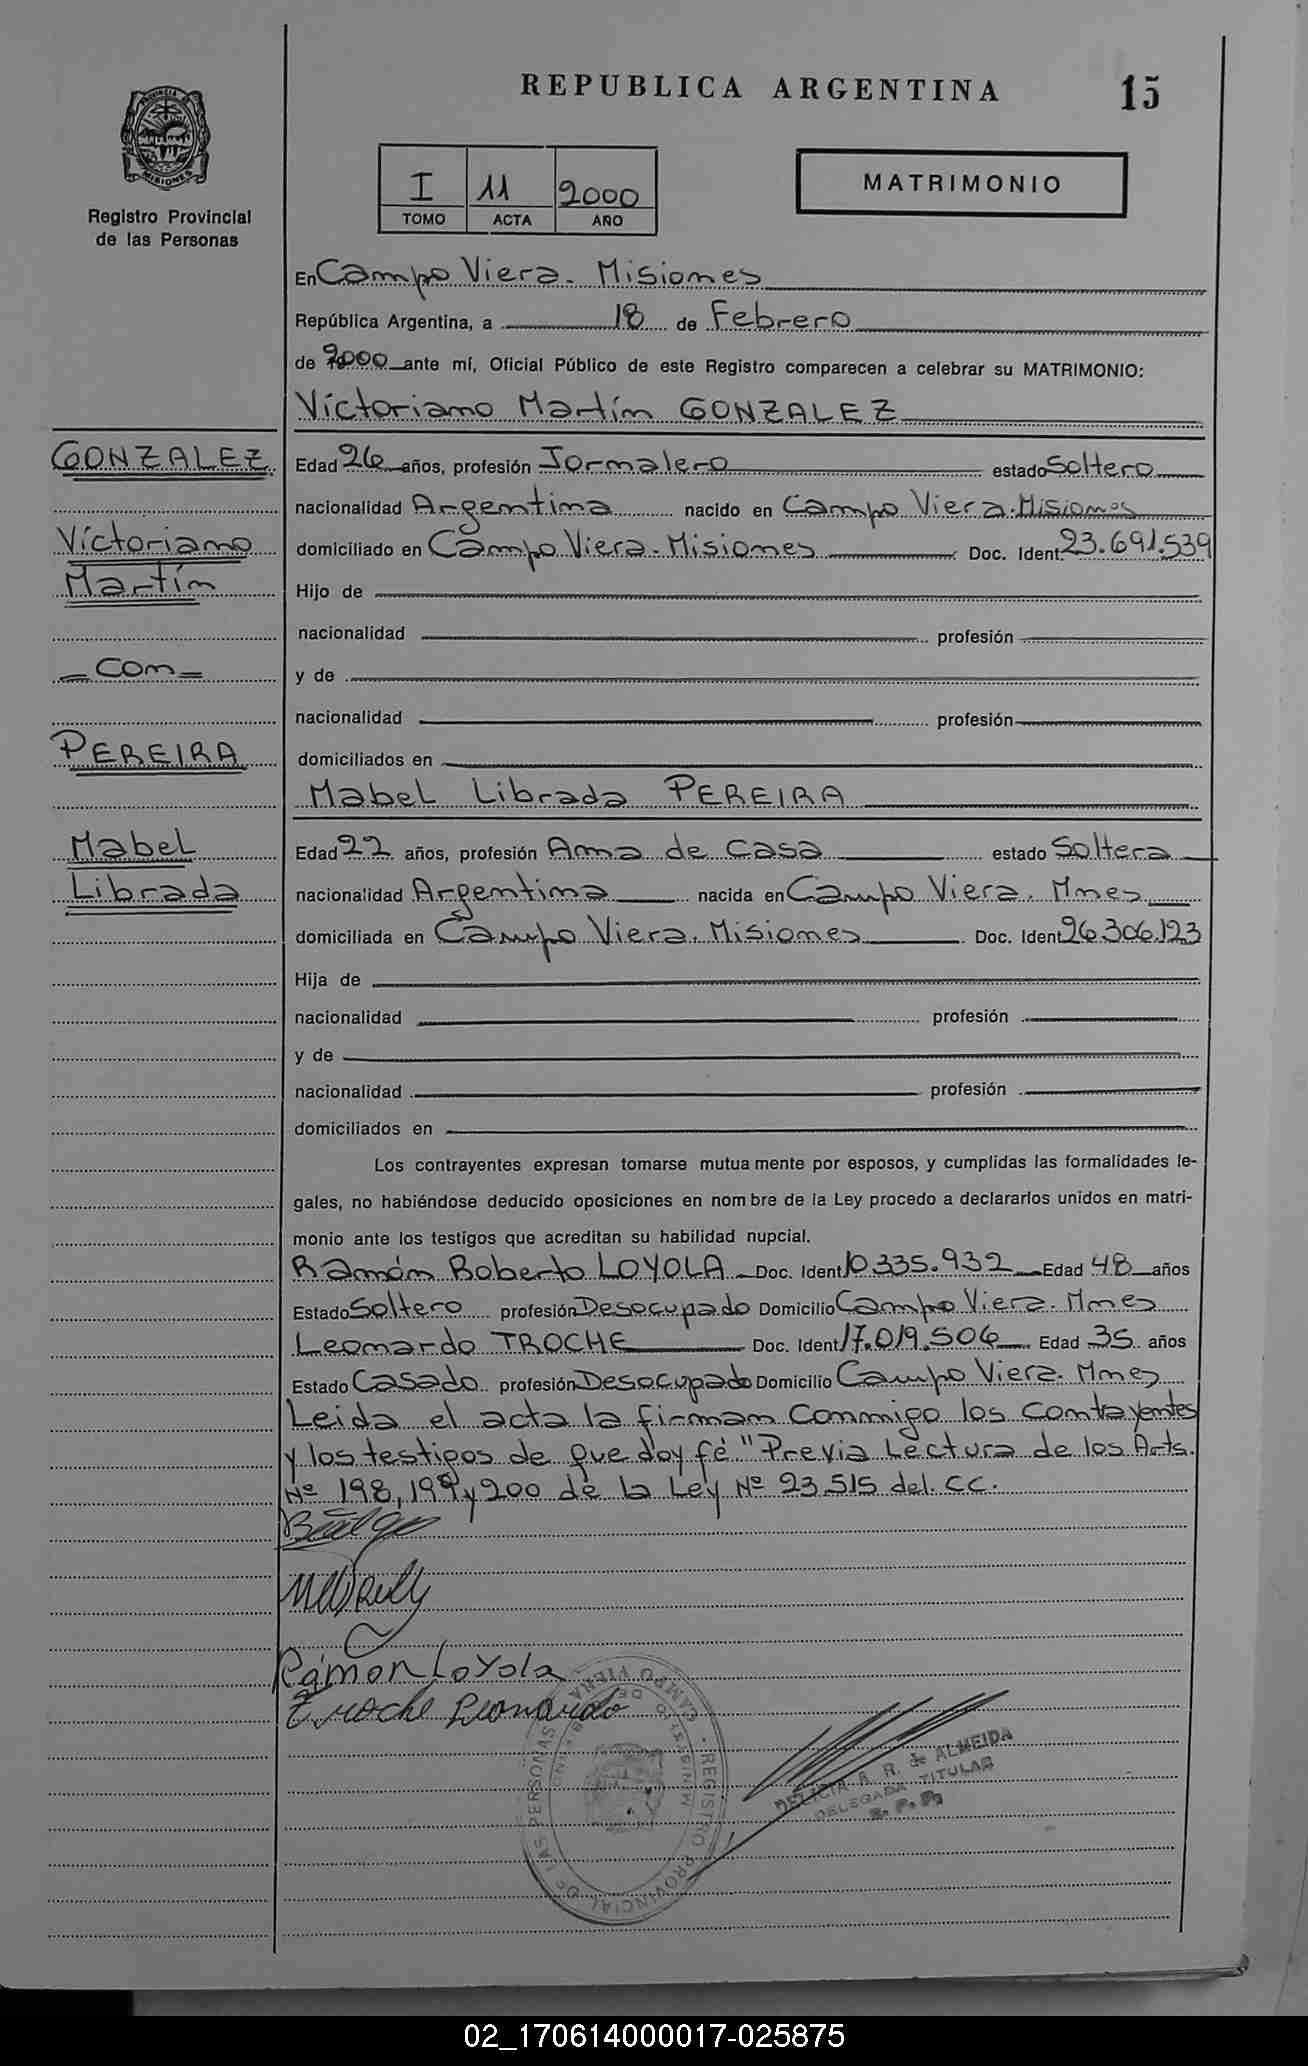 REPUBLICA ARGENTINA 15
PROVINCIA DE MISIONES
Registro Provincial
de las Personas
I 11 2000
TOMO ACTA AÑO
MATRIMONIO
En Campo Viera. Misiones
República Argentina, a 18 de Febrero
de 2000 ante mí, Oficial Público de este Registro comparecen a celebrar su MATRIMONIO:
Víctoriano Martín GONZALEZ
GONZALEZ
Víctoriano
Martín
= Con =
PEREIRA
Mabel
Librada
Edad 26 años, profesión Jornalero estado Soltero
nacionalidad Argentina nacido en Campo Viera. Misiones
domiciliado en Campo Viera. Misiones Doc. Ident. 23.691.539
Hijo de
nacionalidad profesión
y de
nacionalidad profesión
domiciliados en
Mabel Librada PEREIRA
Edad 22 años, profesión Ama de casa estado Soltera
nacionalidad Argentina nacida en Campo Viera. Mnes
domiciliada en Campo Viera. Misiones Doc. Ident 26.306.123
Hija de
nacionalidad profesión
y de
nacionalidad profesión
domiciliados en
Los contrayentes expresan tomarse mutuamente por esposos, y cumplidas las formalidades le-
gales, no habiéndose deducido oposiciones en nombre de la Ley procedo a declararlos unidos en matri-
monio ante los testigos que acreditan su habilidad nupcial.
Ramón Roberto LOYOLA Doc. Ident 10.335.932 Edad 48 años
Estado Soltero profesión Desocupado Domicilio Campo Viera. Mnes
Leonardo TROCHE Doc. Ident 17.019.506 Edad 35 años
Estado Casado profesión Desocupado Domicilio Campo Viera. Mnes
Leida el acta la firman conmigo los contrayentes
y los testigos de que doy fé." Previa Lectura de los Arts.
Nº 198, 199 y 200 de la Ley Nº 23.515 del. CC.
Ramon Loyola
Troche Leonardo
REGISTRO PROVINCIAL DE LAS PERSONAS
CAMPO VIERA
R. de ALMEIDA
DELEGADA TITULAR
R. P. P.
02_170614000017-025875